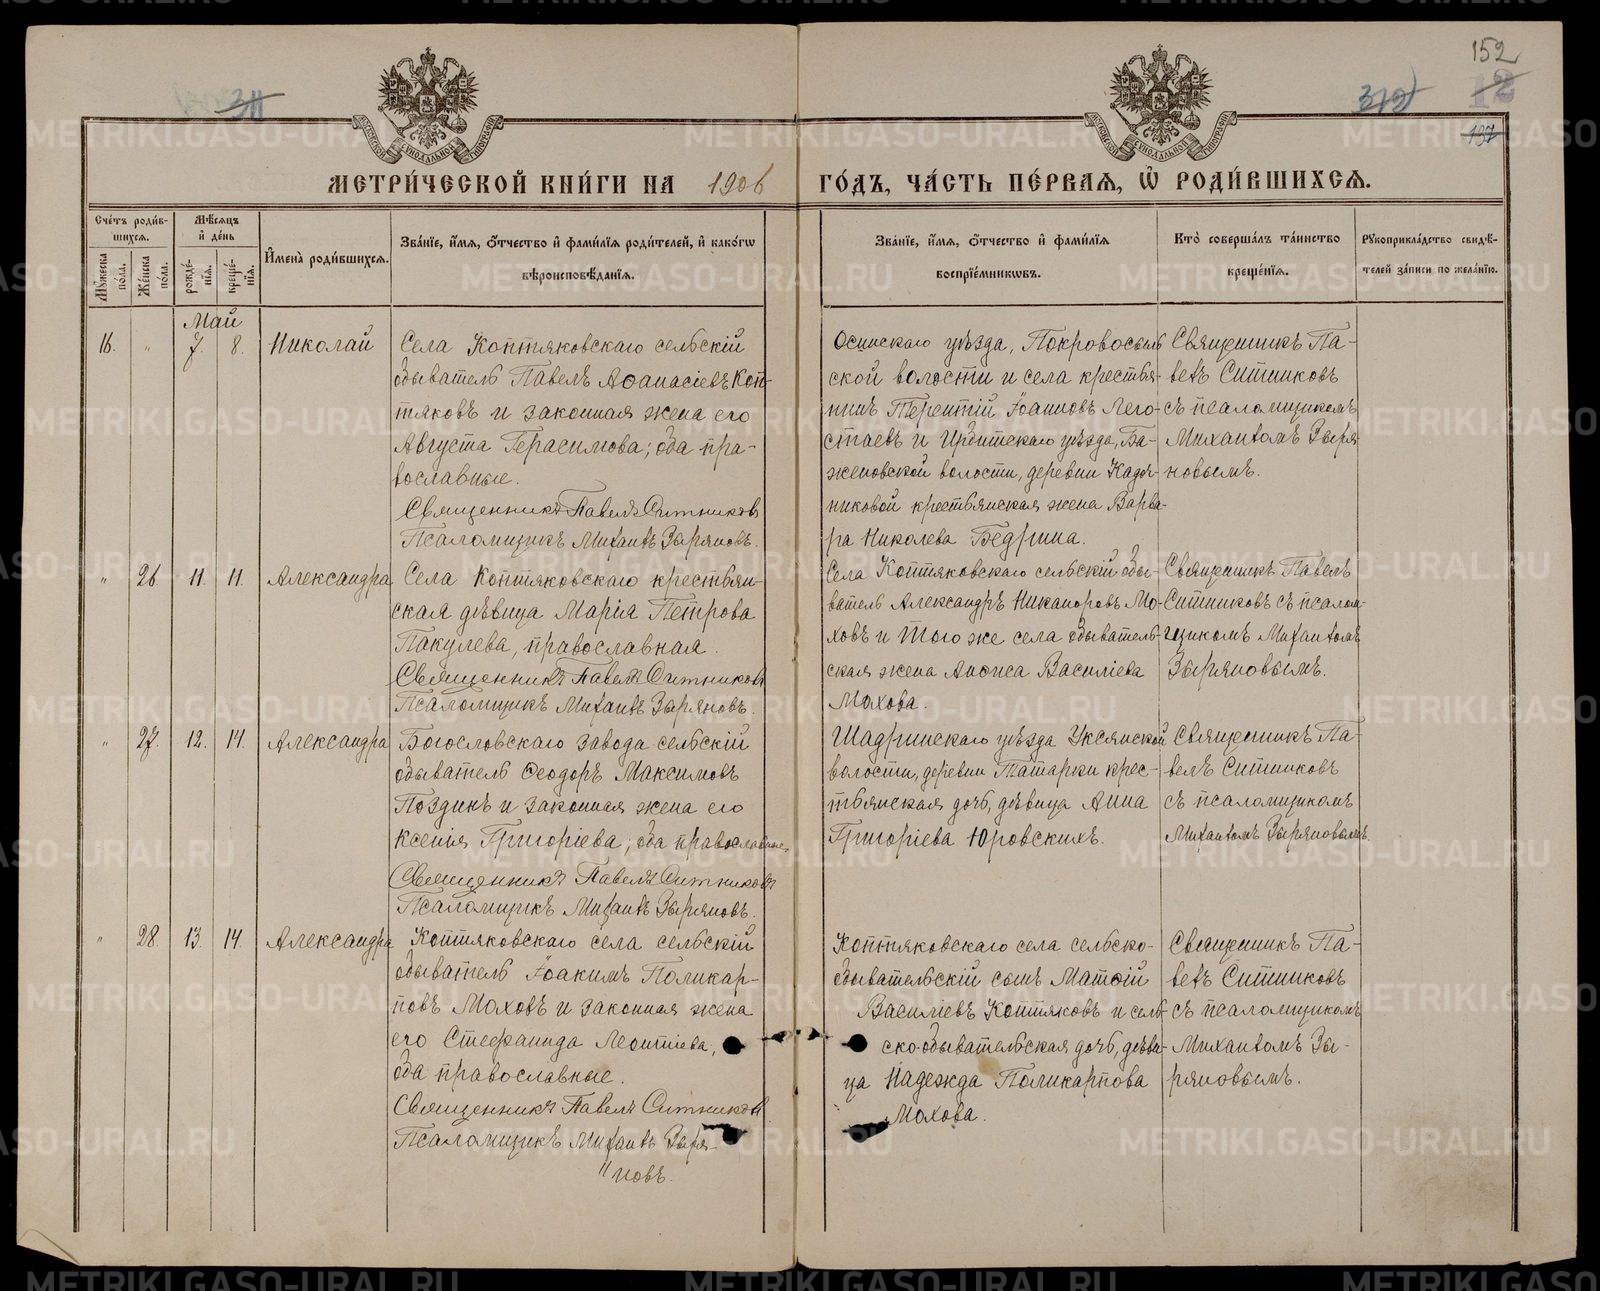 152
311
312
12
137
МЕТРИ́ЧЕСКОЙ КНИ́ГИ НА 1906 ГО́ДЪ, ЧА́СТЬ ПЕ́РВАѦ, Ѡ҆ РОДИ́ВШИХСѦ.
Сче́тъ роди́в-
шихсѧ.
Мꙋ́жеска по́ла.
Же́нска по́ла.
Мѣ́сѧцъ
и҆ де́нь
рожде́-
нїѧ.
креще́-
нїѧ.
И҆мена̀ роди́вшихсѧ.
Зва́нїе, и҆́мѧ, ѻ҆́тчество и҆ фами́лїѧ роди́телей, и҆ како́гѡ
вѣроисповѣ́данїѧ.
Зва́нїе, и҆́мѧ, ѻ҆́тчество и҆ фами́лїѧ
воспрїе́мникѡвъ.
Кто̀ соверша́лъ та́инство
креще́нїѧ.
Рꙋкоприкла́дство свидѣ́-
телей за́писи по жела́нїю.
Май
16. „ 7. 8. Николай
Села Коптяковскаго сельскій
обыватель Павелъ Аѳанасіевъ Коп-
тяковъ и законная жена его
Августа Герасимова; оба пра-
вославные.
Священникъ Павелъ Ситниковъ
Псаломщикъ Михаилъ Зыряновъ.
Осинскаго уѣзда, Покровоясыль-
ской волости и села крестья-
нинъ Терентій Іоанновъ Лего-
стаевъ и Ирбитскаго уѣзда, Ба-
женовской волости, деревни Кадоч-
никовой крестьянская жена Варва-
ра Николева Бедрина.
Священникъ Па-
велъ Ситниковъ
съ псаломщикомъ
Михаиломъ Зыря-
новымъ.
„ 26. 11. 11. Александра
Села Коптяковскаго крестьян-
ская дѣвица Марія Петрова
Пакулева, православная.
Священникъ Павелъ Ситниковъ
Псаломщикъ Михаилъ Зыряновъ.
Села Коптяковскаго сельскій обы-
ватель Александръ Никаноровъ Мо-
ховъ и того же села обыватель-
ская жена Анѳиса Василіева
Мохова.
Священникъ Павелъ
Ситниковъ съ псалом-
щикомъ Михаиломъ
Зыряновымъ.
„ 27. 12. 14. Александра
Богословскаго завода сельскій
обыватель Ѳеодоръ Максимовъ
Поздинъ и законная жена его
Ксенія Григоріева; оба православные.
Священникъ Павелъ Ситниковъ
Псаломщикъ Михаилъ Зыряновъ.
Шадринскаго уѣзда Уксянской
волости, деревни Татарки крес-
тьянская дочь, дѣвица Анна
Григоріева Юровскихъ.
Священникъ Па-
велъ Ситниковъ
съ псаломщикомъ
Михаиломъ Зыряновымъ.
„ 28. 13. 14. Александра
Коптяковскаго села сельскій
обыватель Іоакимъ Поликар-
повъ Моховъ и законная жена
его Стефанида Леонтіева,
оба православные.
Священникъ Павелъ Ситниковъ
Псаломщикъ Михаилъ Зыря-
„новъ.
Коптяковскаго села сельско-
обывательскій сынъ Матѳій
Василіевъ Коптяковъ и сель-
ско-обывательская дочь, дѣви-
ца Надежда Поликарпова
Мохова.
Священникъ Па-
велъ Ситниковъ
съ псаломщикомъ
Михаиломъ Зы-
ряновымъ.
METRIKI.GASO-URAL.RU